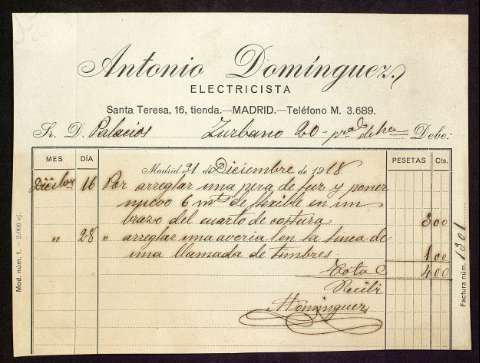 Antonio Domínguez
ELECTRICISTA
Santa Teresa, 16, tienda.—MADRID.—Teléfono M. 3.689.
Sr. D. Palacios Zurbano 20- pral dcha Debe:
MES DÍA Madrid 31 de Diciembre de 1918 PESETAS Cts.
Dicbre 16 Por arreglar una pera de luz y poner
nuevo 6 mts de flexible en un
brazo del cuarto de costura 3 00
" 28 " arreglar una averia en la linea de
una llamada de timbres 1 00
Total 4 00
Recibí
A Dominguez
Mod. núm. 1.
Factura núm. 1301